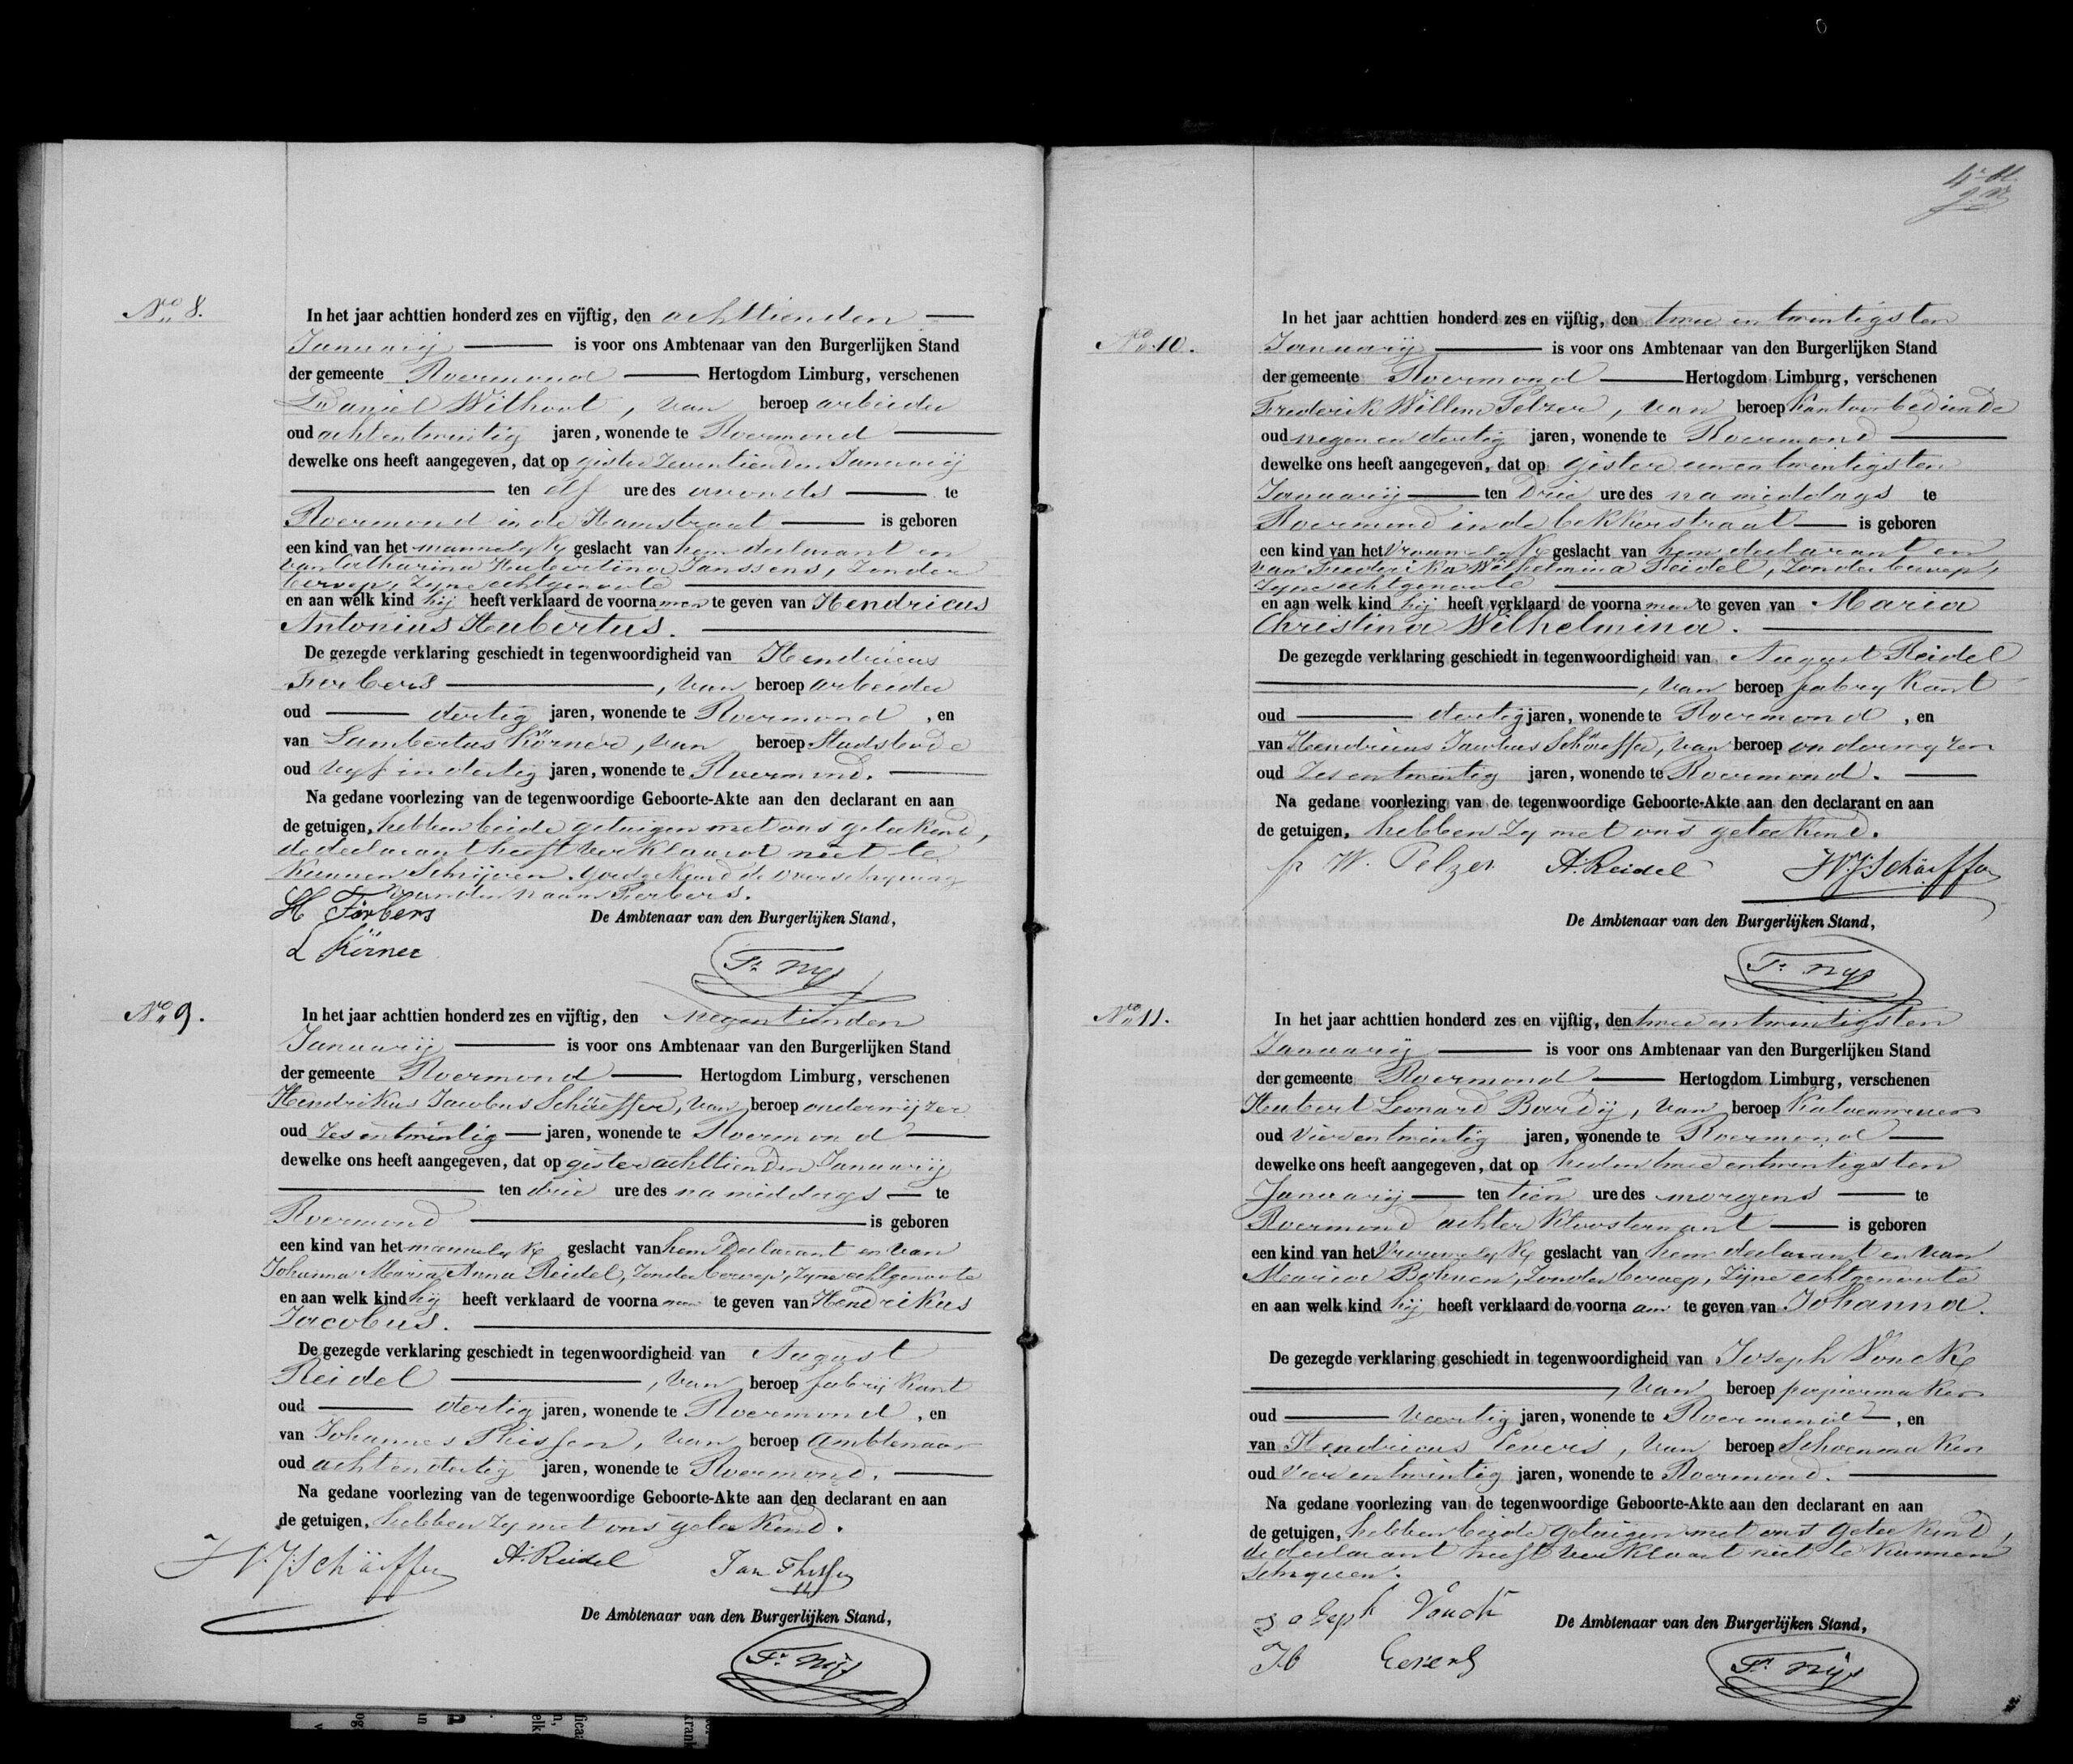 No 8.
In het jaar achttien honderd zes en vijftig, den achttienden
Januarij is voor ons Ambtenaar van den Burgerlijken Stand
der gemeente Roermond Hertogdom Limburg, verschenen
Daniel Wilhout, van beroep arbeider
oud achtentwintig jaren, wonende te Roermond
dewelke ons heeft aangegeven, dat op gister zeventienden Januarij
ten elf ure des avonds te
Roermond in de Hamstraat is geboren
een kind van het mannelijk geslacht van hem declarant en
van Catharina Hubertina Janssens, zonder
beroep, zijne echtgenoote
en aan welk kind hij heeft verklaard de voornamen te geven van Hendricus
Antonius Hubertus.
De gezegde verklaring geschiedt in tegenwoordigheid van Hendricus
Ferbers, van beroep arbeider
oud dertig jaren, wonende te Roermond, en
van Lambertus Körner, van beroep Stadsbode
oud vijf en dertig jaren, wonende te Roermond.
Na gedane voorlezing van de tegenwoordige Geboorte-Akte aan den declarant en aan
de getuigen, hebben beide getuigen met ons geteekend,
de declarant heeft verklaard niet te
kunnen schrijven. goedgekeurd de overschrijving
van den naam Ferbers.
H Förbers
De Ambtenaar van den Burgerlijken Stand,
L Körner
Fr Nijs
No 9.
In het jaar achttien honderd zes en vijftig, den negentienden
Januarij is voor ons Ambtenaar van den Burgerlijken Stand
der gemeente Roermond Hertogdom Limburg, verschenen
Hendrikus Jacobus Schäeffer, van beroep onderwijzer
oud zesentwintig jaren, wonende te Roermond
dewelke ons heeft aangegeven, dat op gister achttienden Januarij
ten drie ure des namiddags te
Roermond is geboren
een kind van het mannelijk geslacht van hem Declarant en van
Johanna Maria Anna Reidel, zonder beroep, zijne echtgenoote
en aan welk kind hij heeft verklaard de voornamen te geven van Hendrikus
Jacobus.
De gezegde verklaring geschiedt in tegenwoordigheid van August
Reidel, van beroep fabrijkant
oud dertig jaren, wonende te Roermond, en
van Johannes Thissen, van beroep Ambtenaar
oud achtendertig jaren, wonende te Roermond.
Na gedane voorlezing van de tegenwoordige Geboorte-Akte aan den declarant en aan
de getuigen, hebben zij met ons geteekend.
H J Schäeffer A. Reidel Jan Thissen
De Ambtenaar van den Burgerlijken Stand,
Fr Nijs
No 10.
In het jaar achttien honderd zes en vijftig, den twee en twintigsten
Januarij is voor ons Ambtenaar van den Burgerlijken Stand
der gemeente Roermond Hertogdom Limburg, verschenen
Frederik Willem Pelzer, van beroep kantoorbediende
oud negen en dertig jaren, wonende te Roermond
dewelke ons heeft aangegeven, dat op gister eenentwintigsten
Januarij ten drie ure des namiddags te
Roermond in de bekkerstraat is geboren
een kind van het vrouwelijk geslacht van hem declarant en
van Frederika Wilhelmina Reidel, zonder beroep,
zijne echtgenoote
en aan welk kind hij heeft verklaard de voornamen te geven van Maria
Christina Wilhelmina.
De gezegde verklaring geschiedt in tegenwoordigheid van August Reidel
, van beroep fabrykant
oud dertig jaren, wonende te Roermond, en
van Hendricus Jacobus Schäeffer, van beroep onderwyzer
oud zesentwintig jaren, wonende te Roermond.
Na gedane voorlezing van de tegenwoordige Geboorte-Akte aan den declarant en aan
de getuigen, hebben zij met ons geteekend.
fr W. Pelzer A. Reidel H.J. Schäeffer
De Ambtenaar van den Burgerlijken Stand,
Fr Nijs
No 11.
In het jaar achttien honderd zes en vijftig, den twee en twintigsten
Januarij is voor ons Ambtenaar van den Burgerlijken Stand
der gemeente Roermond Hertogdom Limburg, verschenen
Hubert Leonard Bovrdij, van beroep
oud vierentwintig jaren, wonende te Roermond
dewelke ons heeft aangegeven, dat op heden twee entwintigsten
Januarij ten tien ure des morgens te
Roermond achter kloosterwant is geboren
een kind van het vrouwelijk geslacht van hem declarant en van
Maria Bohnen, zonder beroep, zijne echtgenoote
en aan welk kind hij heeft verklaard de voornaam te geven van Johanna.
De gezegde verklaring geschiedt in tegenwoordigheid van Joseph Vonck
, van beroep papiermaker
oud veertig jaren, wonende te Roermond, en
van Hendricus Eevers, van beroep Schoenmaker
oud vierentwintig jaren, wonende te Roermond.
Na gedane voorlezing van de tegenwoordige Geboorte-Akte aan den declarant en aan
de getuigen, hebben beide getuigen met ons geteekend,
de declarant heeft verklaard niet te kunnen
schrijven.
Joseph Vonck
De Ambtenaar van den Burgerlijken Stand,
H Eevers
Fr Nijs